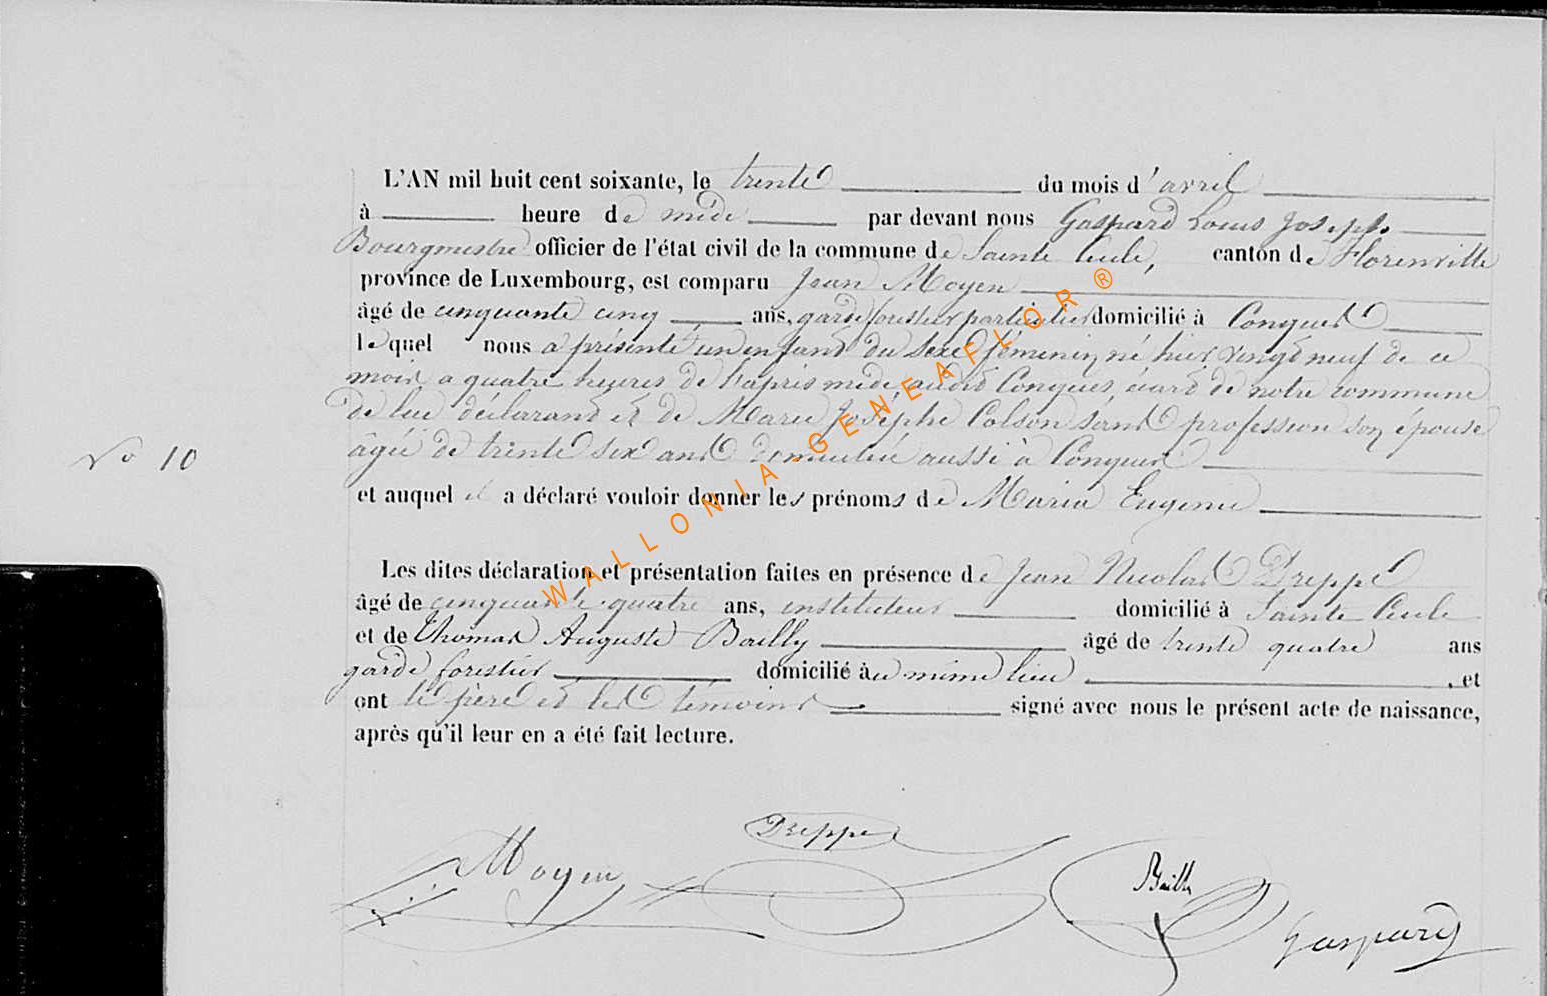 L'AN mil huit cent soixante, le trente du mois d'avril
à heure de midi par devant nous Gaspard Louis Joseph
Bourgmestre officier de l'état civil de la commune de Sainte Cécile, canton de Florenville
province de Luxembourg, est comparu Jean Moyen
âgé de cinquante cinq ans, garde forestier particulier domicilié à Conques
lequel nous a présenté un enfant du sexe féminin né hier vingt neuf de ce
mois, a quatre heures de l'après midi, audit Conques, écart de notre commune
de lui déclarant et de Marie Josèphe Colson sans profession son épouse
âgée de trente six ans domiciliée aussi à Conques
N° 10
et auquel il a déclaré vouloir donner les prénoms de Maria Eugénie
Les dites déclaration et présentation faites en présence de Jean Nicolas Dreppe
âgé de cinquante quatre ans, instituteur domicilié à Sainte Cécile
et de Thomas Auguste Bailly âgé de trente quatre ans
garde forestier domicilié au même lieu , et
ont le père et les témoins signé avec nous le présent acte de naissance,
après qu'il leur en a été fait lecture.
Moyen Dreppe Bailly Gaspard
WALLONIA-GENEAFLOR®